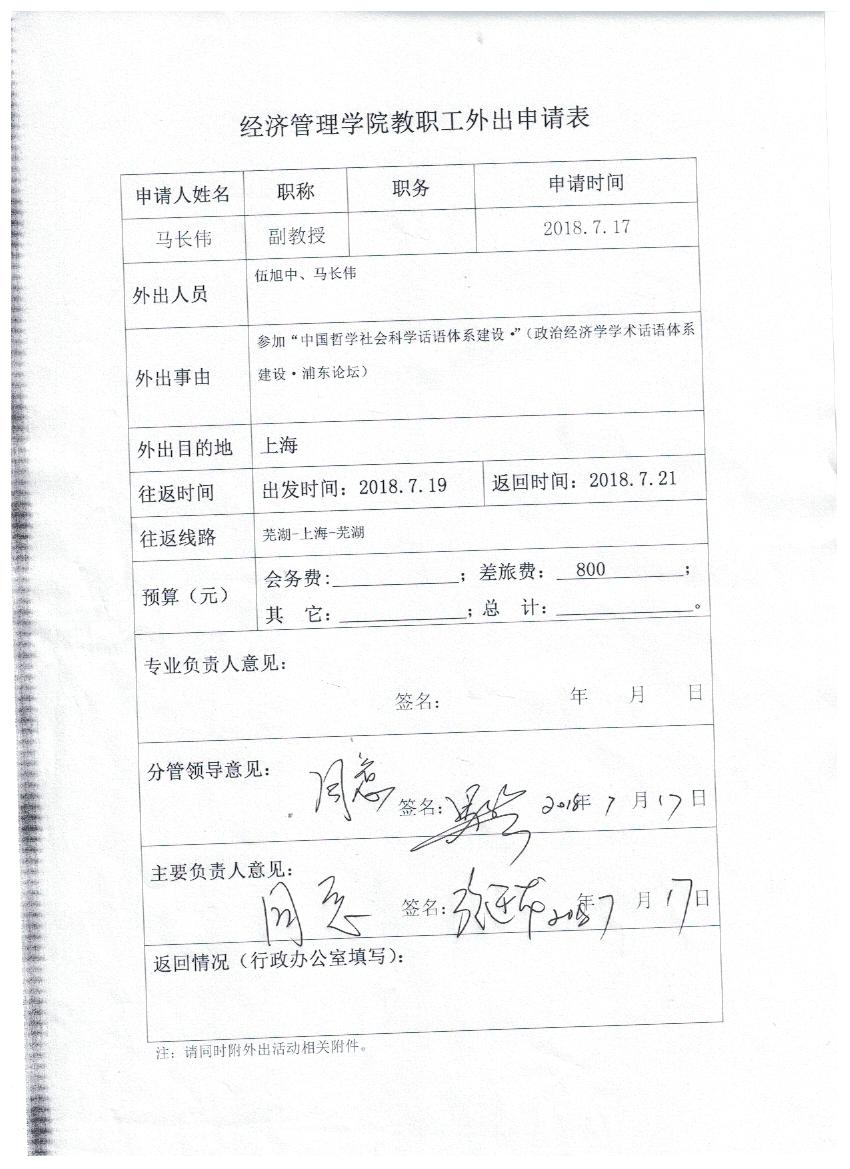 经济管理学院教职工外出申请表
申请人姓名 职称 职务 申请时间
马长伟 副教授 2018.7.17
外出人员 伍旭中、马长伟
外出事由 参加“中国哲学社会科学话语体系建设·”(政治经济学学术话语体系
建设·浦东论坛)
外出目的地 上海
往返时间 出发时间：2018.7.19 返回时间：2018.7.21
往返线路 芜湖-上海-芜湖
预算（元） 会务费:____；差旅费：800；
其 它：____；总 计：____。
专业负责人意见：
签名： 年 月 日
分管领导意见：
同意 签名： 2018年 7 月 17 日
主要负责人意见：
同意 签名： 2018年 7 月 17 日
返回情况（行政办公室填写）：
注：请同时附外出活动相关附件。